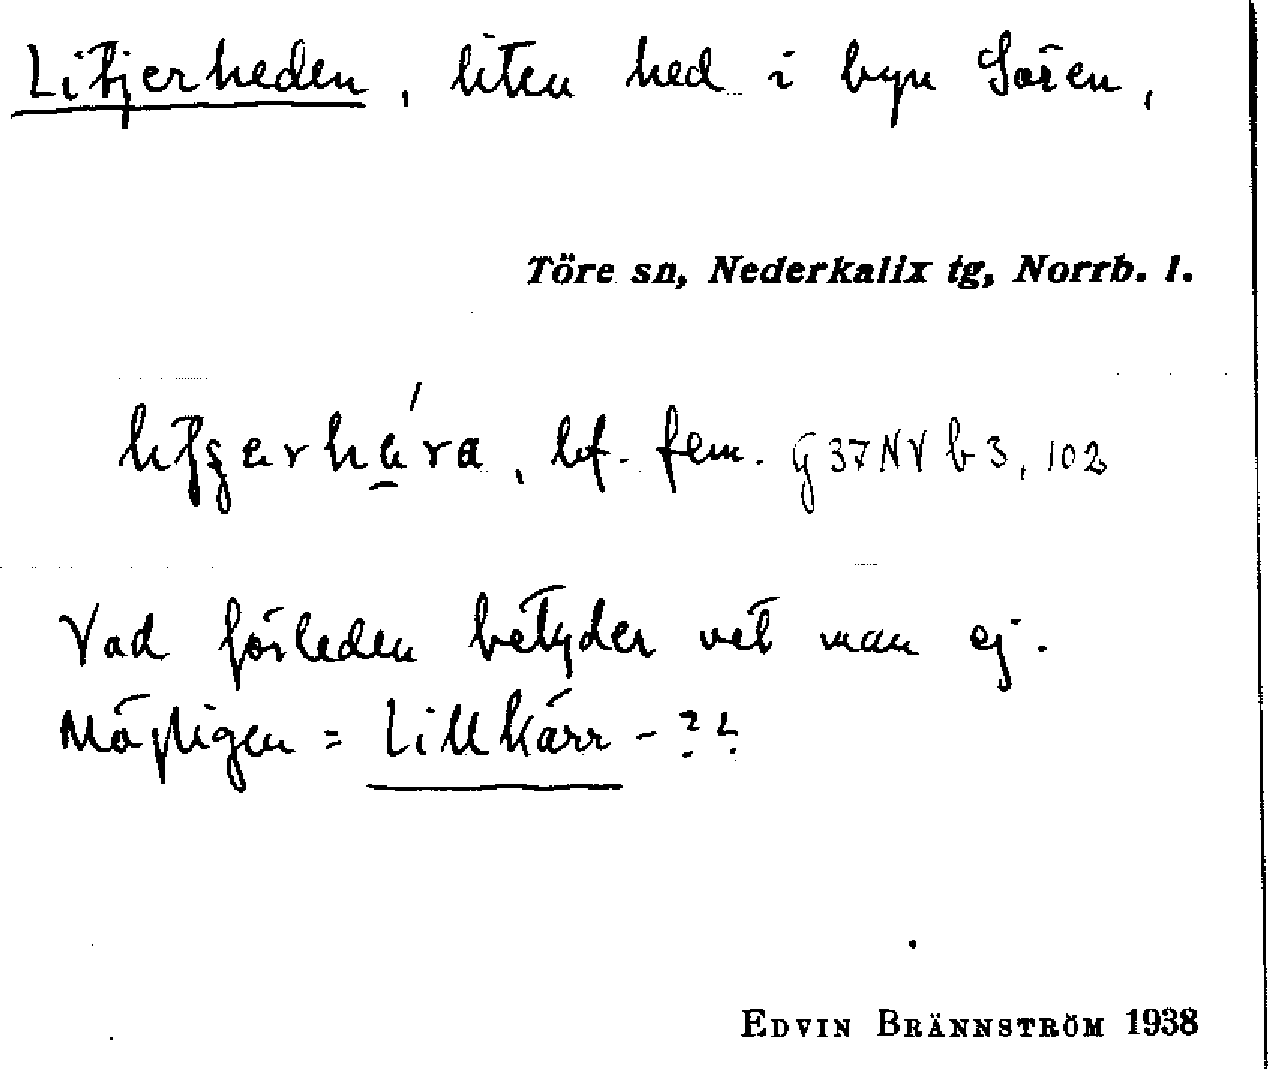 Litjerheden, liten hed i byn Sören,
Töre sn, Nederkalix tg, Norrb. l.
bf. fem. G 37 NV b 3, 102
Vad förleden betyder vet man ej.
Möjligen = Lillkärr - ??
EDVIN BRÄNNSTRÖM 1938